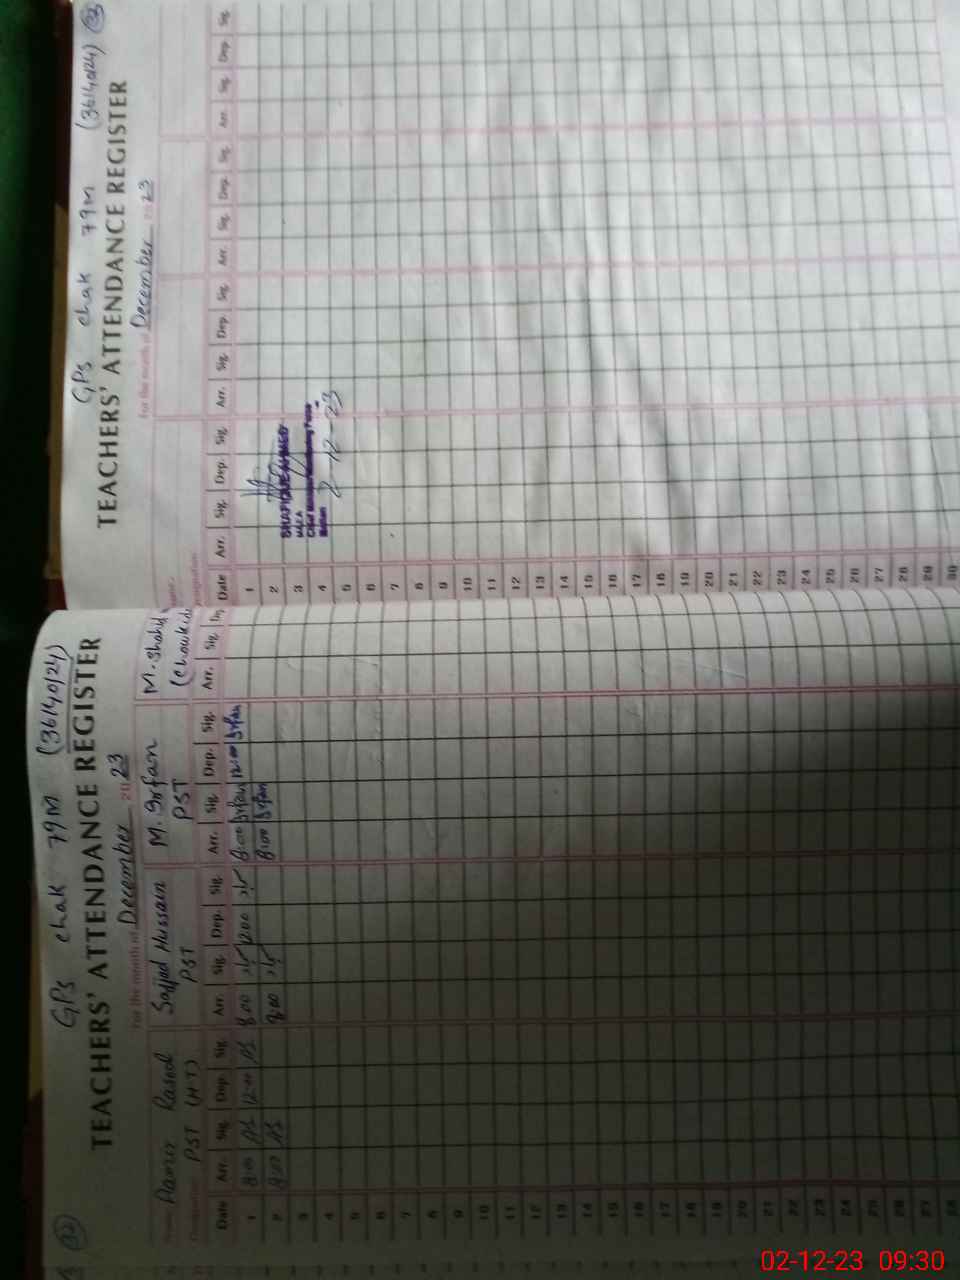 GPS chak 79M (36140124)
TEACHERS' ATTENDANCE REGISTER
For the month of December 2023
Rasool Sajjad Hussain M. Irfan M. Shahid
PST (H.T) PST PST (Chowkid
Date Arr. Sig. Dep. Sig. Arr. Sig. Dep. Sig. Arr. Sig. Dep. Sig. Arr. Sig.
1 8:00 AS 12:00 AS 8:00 1200 8:00 Irfan 12:00 Irfan
2 8:00 AS 8:00 8:00 Irfan
3
4
5
6
7
8
9
10
11
12
13
14
15
16
17
18
19
20
21
22
23
24
25
26
27
28
GPS chak 79M (36140124) 32
TEACHERS' ATTENDANCE REGISTER
For the month of December 2023
Date Arr. Sig. Dep. Sig. Arr. Sig. Dep. Sig. Arr. Sig. Dep. Sig. Arr. Sig. Dep. Sig.
1
2
SHAFIQUE AHMED
3 M.E.A
4 2-12-23
5
6
7
8
9
10
11
12
13
14
15
16
17
18
19
20
21
22
23
24
25
26
27
28
29
30
02-12-23 09:30